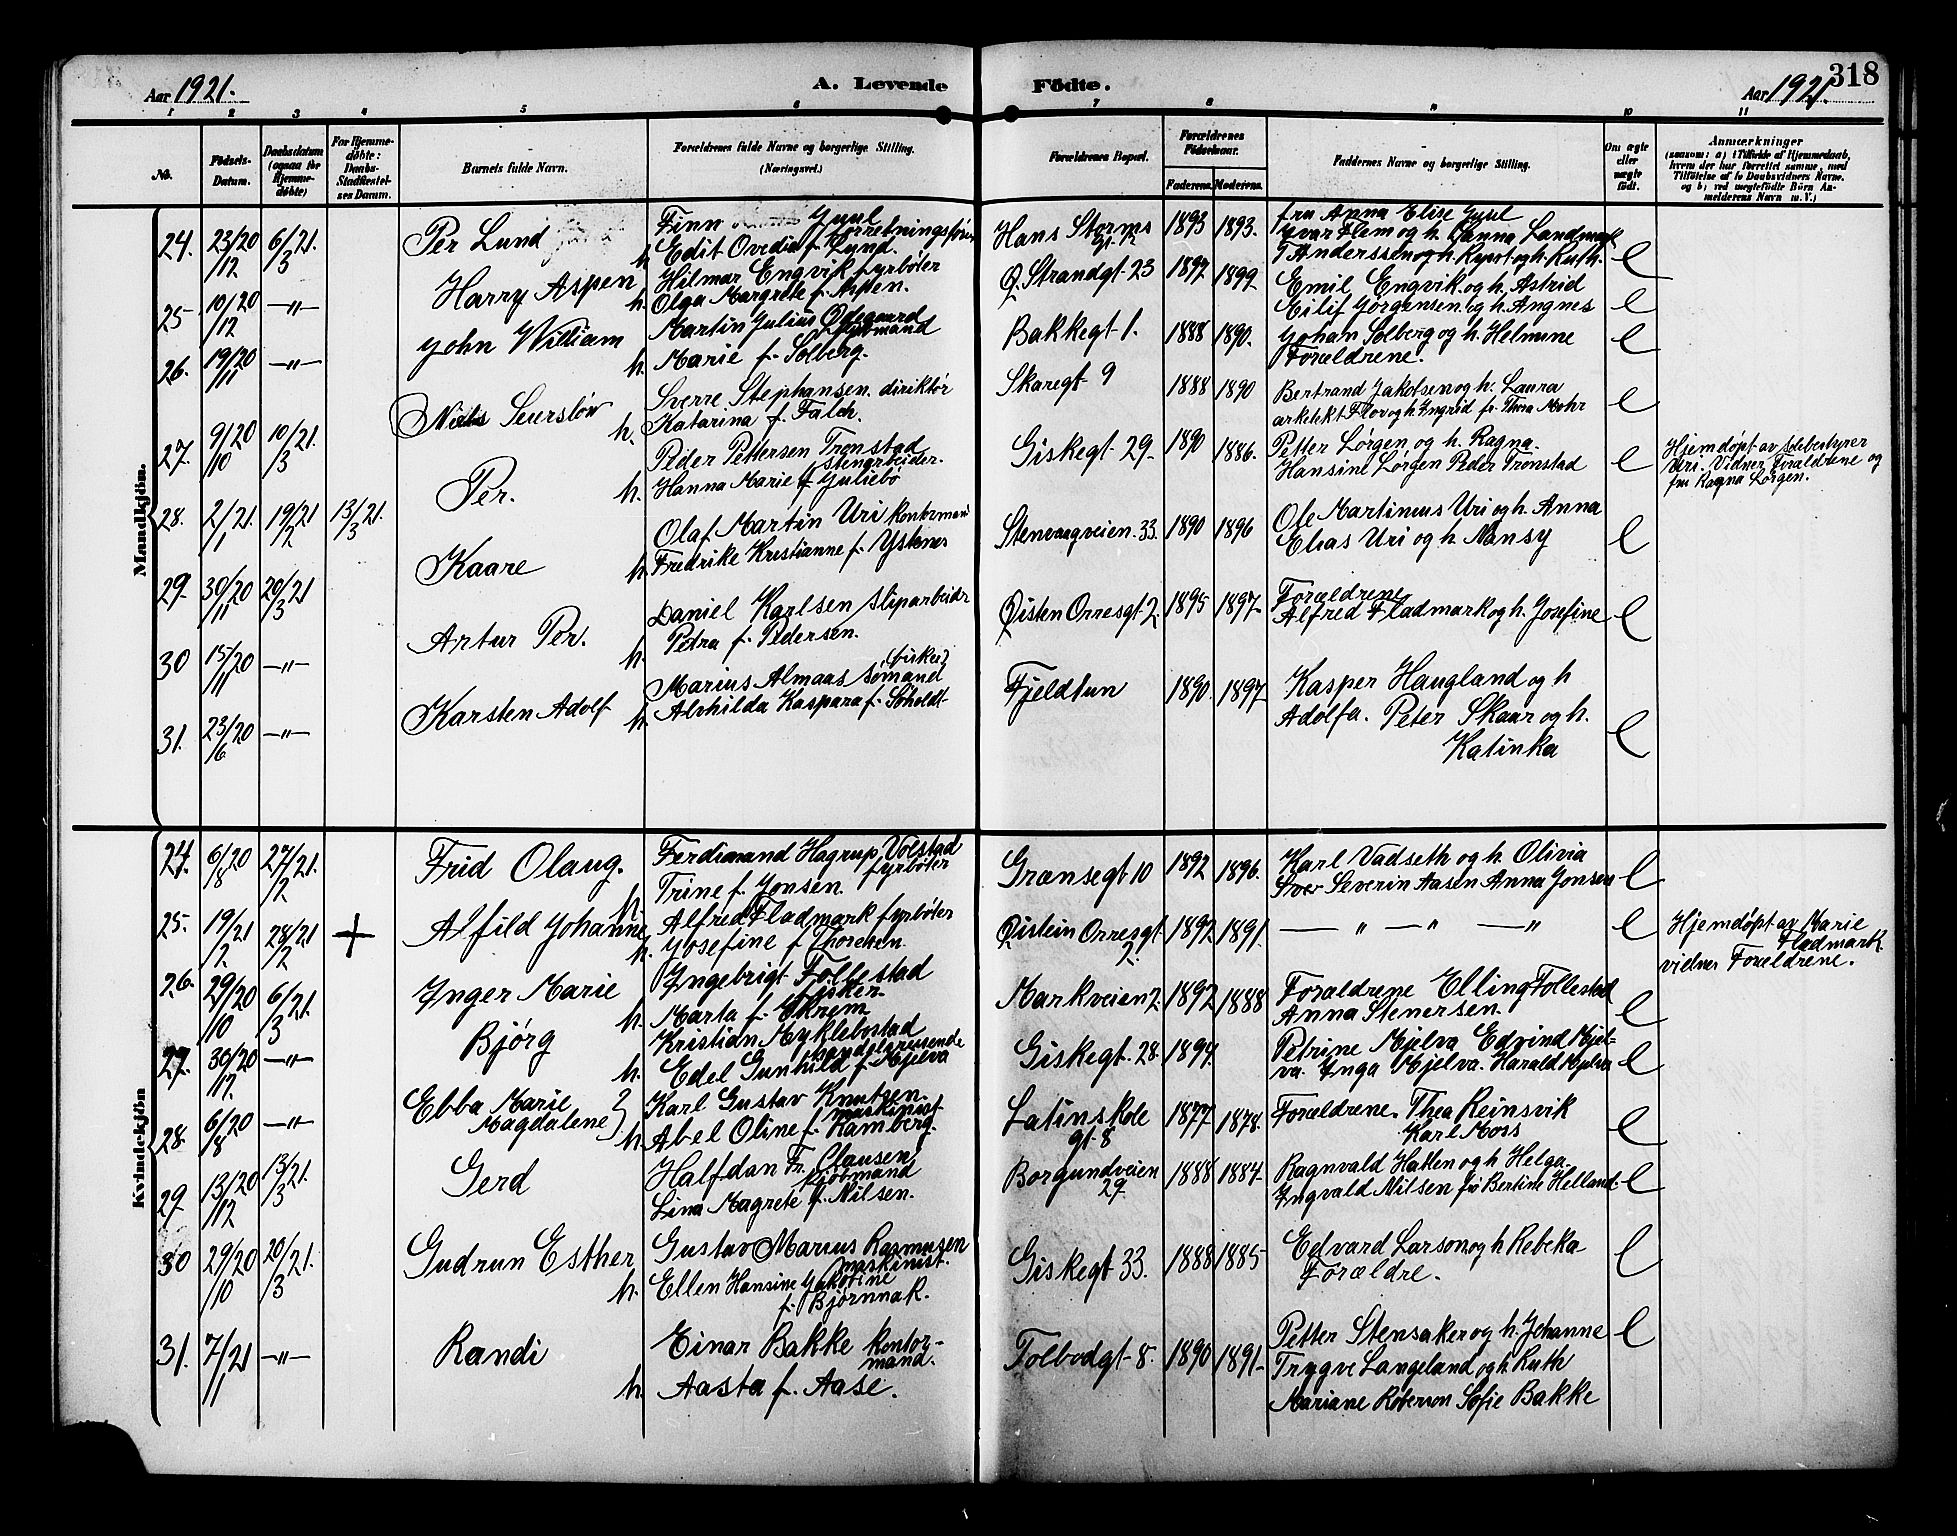 318
Aar 1921.
A. Levende
Födte.
Aar 1921.
1 2 3 4 5 6 7 8 9 10 11
No.
Födsels-
Datum.
Daabsdatum
(ogsaa for
Hjemme-
døbte)
For Hjemme-
døbte:
Daabs-
Stadfæstel-
ses Datum.
Barnets fulde Navn.
Forældrenes fulde Navne og borgerlige Stilling.
(Næringsvei.)
Forældrenes Bopæl.
Forældrenes
Fødselsaar.
Faderens. Moderens.
Faddernes Navne og borgerlige Stilling.
Om ægte
eller
uægte
født.
Anmærkninger
(saasom: a) i Tilfælde af Hjemmedaab,
hvem der har forrettet samme, med
Tilföielse af to Daabsvidners Navne.
og b) ved uægtefødte Börn An-
melderens Navn m. V.)
Mandkjön.
24. 23/20 /12 6/21. /3
Per Lund
Finn Juul
forretningsfører
h. Edit Ovedia f. Lund.
Hans Storms
gt. 12
1893 1893.
fru Anna Elise Juul
Yvar Flem og h. Hanna Landmark
T Anderssen og h. og h. Ruth.
e
25- 10/20 /12 -"-
Harry Aspen
Hilmar Engvik fyrbøter
h. Olga Margrete f. Aspen.
Ø. Strandgt. 23
1897 1899
Emil Engvik og h. Astrid
Eilif Jørgensen og h. Angnes
e
26. 19/20 /11 -"-
John William
Martin Julius Ødegaard
styrmand
h. Marie f. Solberg.
Bakkegt 1.
1888 1890.
Johan Solberg og h. Helmine
Forældrene.
e
27. 9/20 /10 10/21. /3
Niels
Sverre Stephansen. direktør
h. Katarina f. Falch.
Skaregt 9
1888 1890
Bertrand Jakobsen og h. Laura
arkitekt Flov og h Ingrid fr. Thora Mohr
e
28. 2/21. /1 19/21 /2 13/21. /3
Per.
Peder Pettersen Tronstad
stenarbeider.
h. Hanna Marie f Juliebø
Giskegt 29-
1890 1886.
Petter Lørgen og h. Ragna.
Hansine Lørgen Peder Tronstad
e
Hjemdøpt av selebestyrer
Uri. Vidner Forældrene og
fru Ragna Lørgen.
29. 30/20 /11 20/21 /3
Kaare
Olaf Martin Uri kontormand
h. Fredrike Kristianne f. Ystenes
Stenvaagveien. 33.
1890 1896
Ole Martinius Uri og h. Anna
Elias Uri og h. Nansy
e
30 15/20 /11 -"-
Artur Per.
Daniel Karlsen sliparbeider
h. Petra f. Pedersen.
Øisten Orresgt. 2
1895 1897-
Forældrene
Alfred Fladmark og h. Josefine
e
31. 23/20 /6 -"-
Karsten Adolf
(fisker)
Marius Almaas sømand
h. Alvhilda Kaspara f. Soholdt
Fjeldtun
1890. 1897
Kasper Haugland og h
Adolfa. Peter Skaar og h.
Katinka
e
Kvindekjön
24. 6/20 /8 27/21. /2
Frid Olaug.
Ferdinand Hagrup Volstad
fyrbøter
h. Trine f. Jonsen.
Grænsegt 10
1892 1896.
Karl Vadseth og h. Olivia
Severin Aasen Anna Jonsen
e
25. 19/21 /2 28/21 /2 +
Alfild Johanne
Alfred Fladmark fyrbøter
h. Josefine f Thoresen.
Øistein Orresgt
2.
1892 1891.
— " — " — "
e
Hjemdøpt av Marie
Fladmark
vidner Forældrene.
26. 29/20 /10 6/21. /3
Inger Marie
Ingebrigt Follestad
fisker.
h. Marta f. Ekrem
Markveien 2.
1892 1888
Forældrene Elling Follestad
Anna Stenersen.
e
27. 30/20 /12. -"-
Bjørg
Kristian Myklebostad
handelsreisende
h. Edel Gunhild f. Mjelva
Giskegt. 28.
1894.
Petrine Mjelva Edvind Mjel-
va. Inga Mjelva. Harald Mjelva
e
28. 6/20 /8 -"-
Ebba Marie
Magdalene }
Karl Gustav Knutzen.
maskinist
h. Abel Oline f. Ramberg.
Latinskole
gt. 8
1877 1878.
Forældrene. Thea Reinsvik
Karl Moss
e
29. 13/20 /12 13/21. /3
Gerd
Halfdan Fr. Clausen
kjøbmand
Lina Magrete f. Nilsen.
Borgundveien
29.
1888 1884.
Ragnvald Hatlen og h Helga.
Ingvald Nilsen frk Bertine Helland.
e
30 29/20 /10 20/21. /3
Gudrun Esther
Gustav Marius Rasmusen
maskinist.
h. Ellen Hansine Jakobine
f. Bjørnnak.
Giskegt 33.
1888 1885
Edvard Larson og h Rebeka
Forældre.
e
31. 7/21 /1 -"-
Randi
Einar Bakke kontor-
mand.
h. Aasta f. Aase.
Tolbodgt 8.
1890 1891-
Petter Stensaker og h. Johanne
Trygve Langeland og h Ruth
Mariane Roberson Sofie Bakke
e